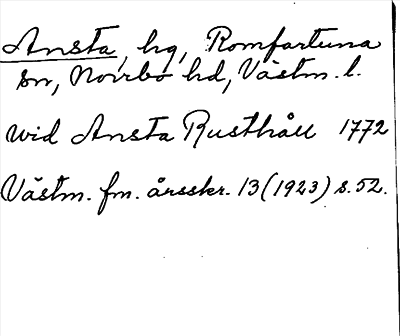 Ansta, hg, Romfartuna
sn, Norrbo hd, Västm. l.
wid Ansta Rusthåll 1772
Västm. fm. årsskr. 13 (1923) s. 52.